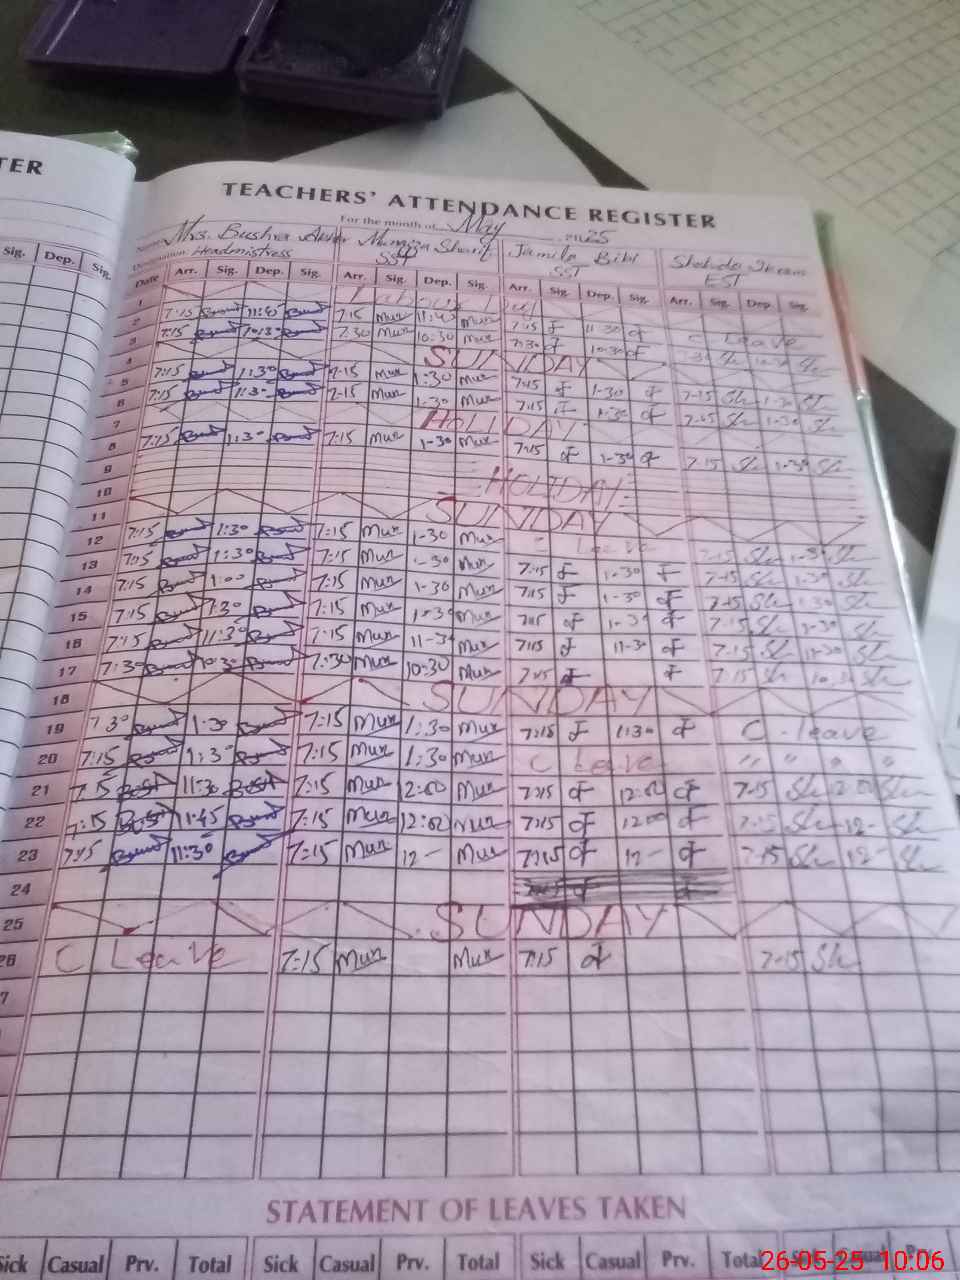 TER
TEACHERS' ATTENDANCE REGISTER
For the month of May 2025
Mrs. Bushra Sharif Jamila Bibi
Designation Headmistress SST SST EST
Sig. Dep. Sig. Date Arr. Sig. Dep. Sig. Arr. Sig. Dep. Sig. Arr. Sig. Dep. Sig. Arr. Sig. Dep. Sig.
1 Labour Day
2 7:15 11:45 7:15 Mun 11:45 Mun 7:15 11-30 C Leave
3 7:15 10:30 7:30 Mun 10:30 Mun 7:30 10:30
4 SUNDAY
5 7:15 1:30 7-15 Mun 1:30 Mun 7:15 1-30 7-15 Sh 1-30 Sh
6 7:15 1:30 7-15 Mun 1-30 Mun 7:15 1:30 7-15 Sh 1-30 Sh
7 HOLIDAY
8 7:15 1:30 7:15 Mun 1-30 Mun 7:15 1-30 7-15 Sh 1-30 Sh
9
10 HOLIDAY
11 SUNDAY
12 7:15 1:30 7:15 Mun 1-30 Mun C Leave 7-15 Sh 1-30 Sh
13 7:15 1:30 7:15 Mun 1-30 Mun 7:15 1-30 7-15 Sh 1-30 Sh
14 7:15 1:00 7:15 Mun 1-30 Mun 7:15 1-30 7-15 Sh 1-30 Sh
15 7:15 1:30 7:15 Mun 1-30 Mun 7:15 1-30 7-15 Sh 1-30 Sh
16 7:15 11:30 7:15 Mun 11-30 Mun 7:15 11-30 7-15 Sh 11-30 Sh
17 7:30 10:30 7:30 Mun 10:30 Mun 7:15 7-15 Sh 10-30 Sh
18 SUNDAY
19 7:30 1:30 7:15 Mun 1:30 Mun 7:15 1:30 C-leave
20 7:15 1:30 7:15 Mun 1:30 Mun C Leave " " " "
21 7:15 11:30 7:15 Mun 12:00 Mun 7:15 12:00 7-15 Sh 12:00 Sh
22 7:15 11:45 7:15 Mun 12:00 Mun 7:15 12:00 7-15 Sh 12- Sh
23 7:15 11:30 7:15 Mun 12- Mun 7:15 12- 7-15 Sh 12- Sh
24
25 SUNDAY
26 C Leave 7:15 Mun Mun 7:15 7-15 Sh
7
STATEMENT OF LEAVES TAKEN
Sick Casual Prv. Total Sick Casual Prv. Total Sick Casual Prv. Total
26-05-25 10:06